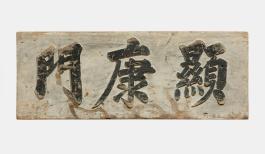 顯康門